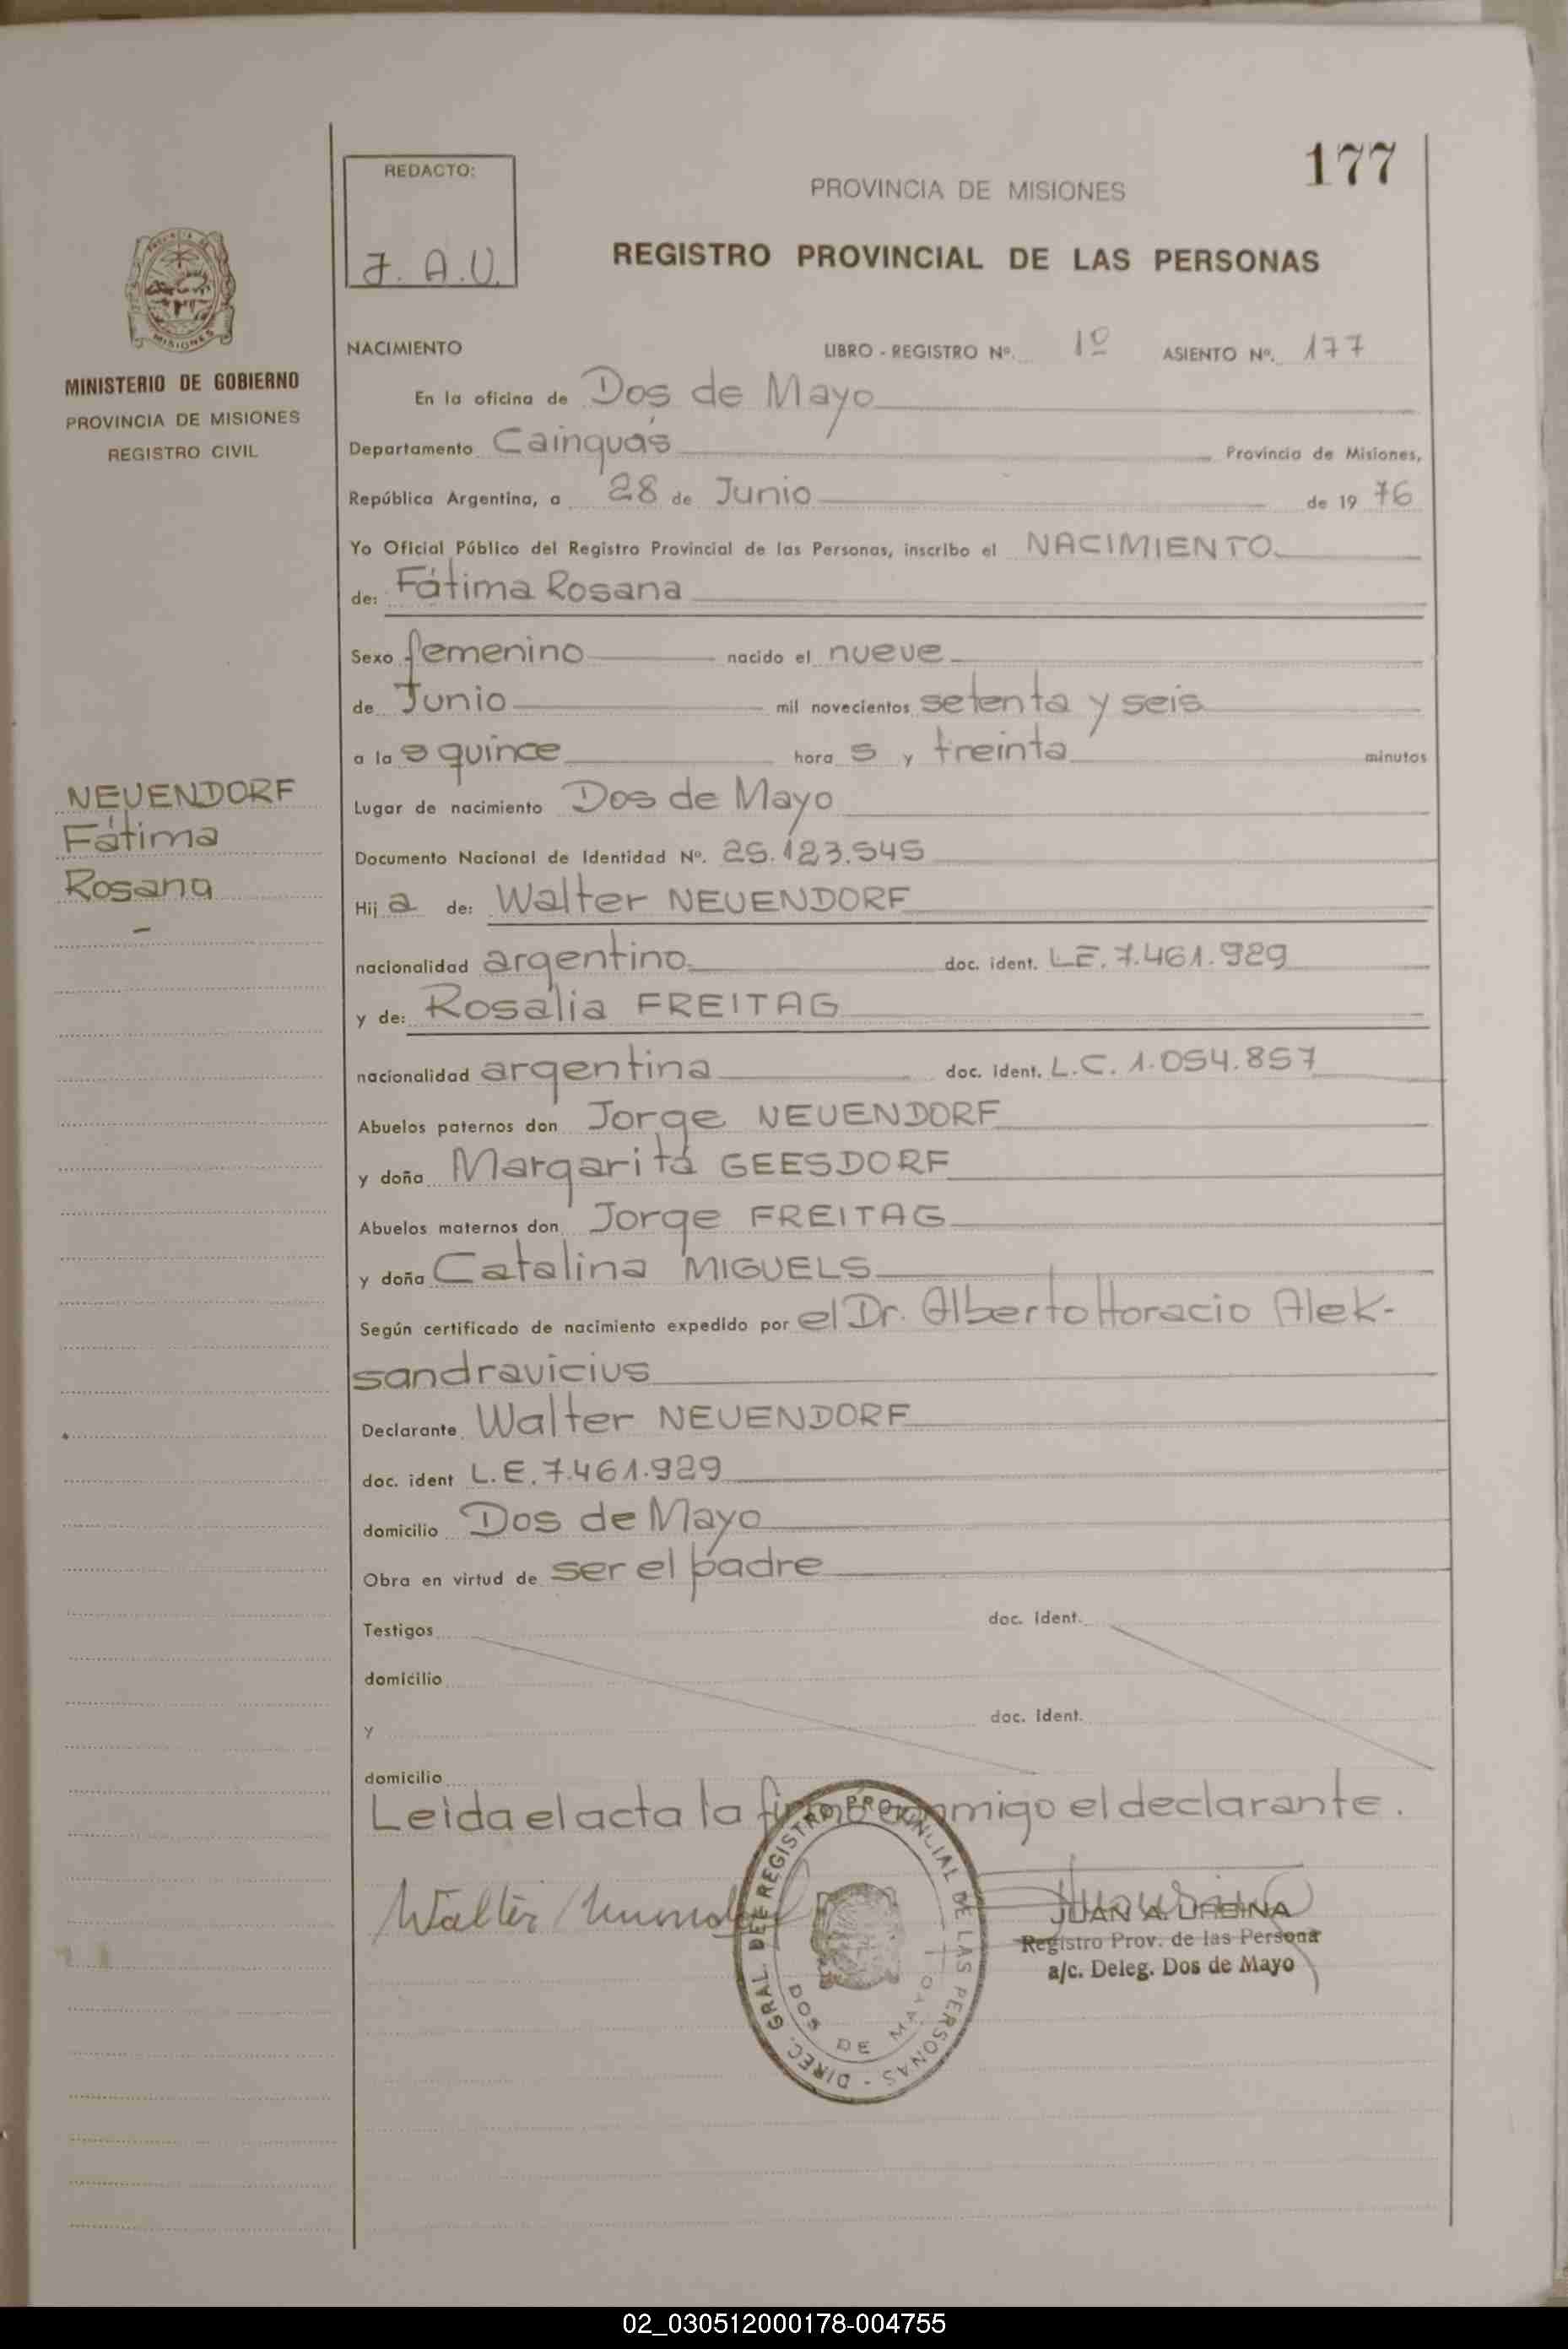 177
REDACTO:
J. A. U.
PROVINCIA DE MISIONES
REGISTRO PROVINCIAL DE LAS PERSONAS
MISIONES
MINISTERIO DE GOBIERNO
PROVINCIA DE MISIONES
REGISTRO CIVIL
NEUENDORF
Fátima
Rosana
NACIMIENTO LIBRO - REGISTRO Nº. 1º ASIENTO Nº. 177
En la oficina de Dos de Mayo
Departamento Cainguás Provincia de Misiones,
República Argentina, a 28 de Junio de 19 76
Yo Oficial Público del Registro Provincial de las Personas, inscribo el NACIMIENTO
de: Fátima Rosana
Sexo femenino nacido el nueve
de Junio mil novecientos setenta y seis
a la s quince hora s y treinta minutos
Lugar de nacimiento Dos de Mayo
Documento Nacional de Identidad Nº. 25.123.545
Hij a de: Walter NEUENDORF
nacionalidad argentino doc. ident. LE. 7.461.929
y de: Rosalia FREITAG
nacionalidad argentina doc. ident. L.C. 1.054.857
Abuelos paternos don Jorge NEUENDORF
y doña Margarita GEESDORF
Abuelos maternos don Jorge FREITAG
y doña Catalina MIGUELS
Según certificado de nacimiento expedido por el Dr. Alberto Horacio Alek-
sandravicius
Declarante Walter NEUENDORF
doc. ident L.E. 7.461.929
domicilio Dos de Mayo
Obra en virtud de ser el padre
Testigos doc. ident.
domicilio
y doc. ident.
domicilio
Leida el acta la firmó conmigo el declarante.
Walter
DIREC. GRAL. DEL REGISTRO PROVINCIAL DE LAS PERSONAS -
DOS DE MAYO
JUAN A. URBINA
Registro Prov. de las Persona
a/c. Deleg. Dos de Mayo
02_030512000178-004755